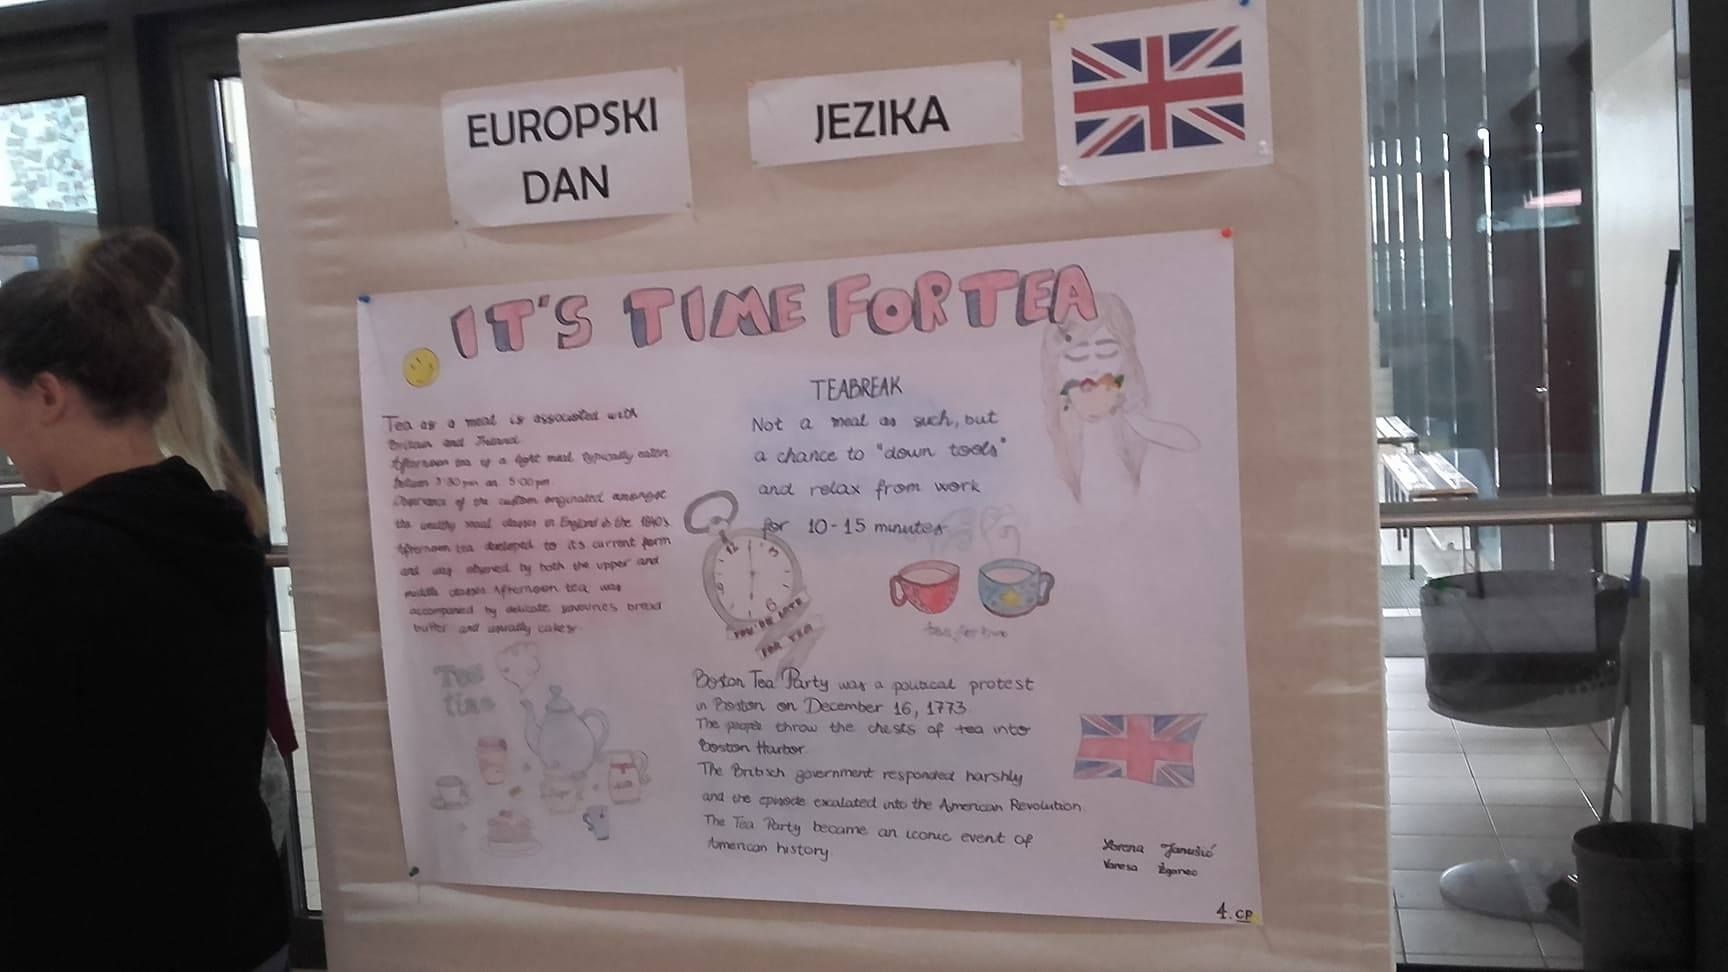 EUROPSKI
DAN
JEZIKA
IT'S TIME FOR TEA
Tea as a meal is associated with
Britain and Ireland
Afternoon tea is a light meal typically eaten
between 3:30 pm an 5:00pm
Observance of the custom originated amongst
the wealthy social classes in England in the 1840's
Afternoon tea developed to it's current form
and was observed by both the upper and
middle classes. Afternoon tea was
accompanied by delicate savouries bread
butter and usually cakes.
Tea
time
TEABREAK
Not a meal as such, but
a chance to "down tools"
and relax from work
for 10-15 minutes
12
3
6
9
YOU'RE LATE
FOR TEA
tea for two
Boston Tea Party was a political protest
in Boston on December 16, 1773
The people throw the chests of tea into
Boston Harbor.
The Britisch government responded harshly
and the episode escalated into the American Revolution.
The Tea Party became an iconic event of
American history
Janušić
Vanesa Žganec
4. CP